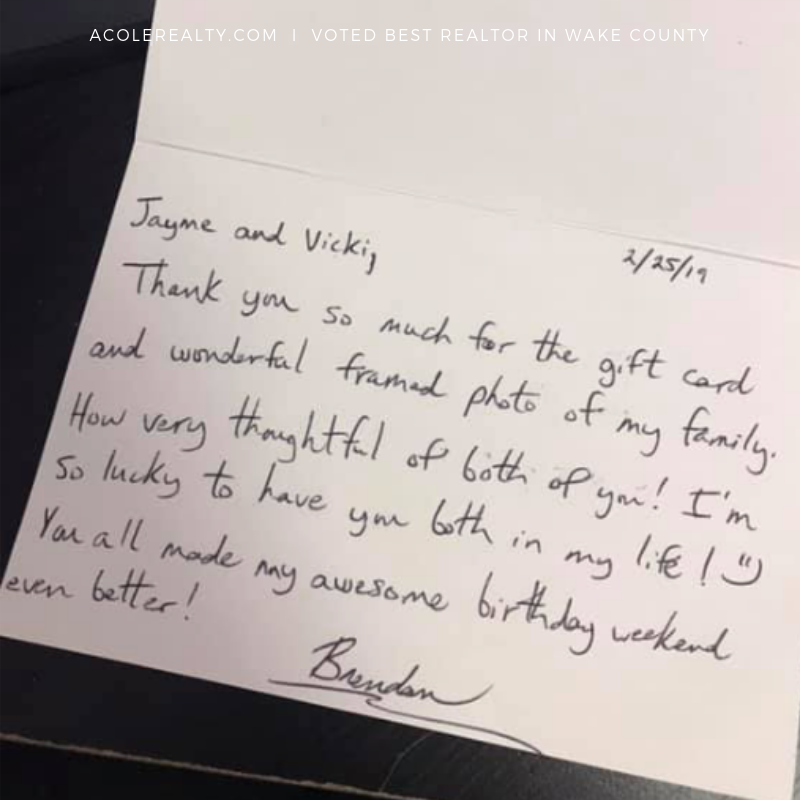 ACOLEREALTY.COM | VOTED BEST REALTOR IN WAKE COUNTY
2/25/19
Jayme and Vicki,
Thank you so much for the gift card
and wonderful framed photo of my family.
How very thoughtful of both of you! I'm
so lucky to have you both in my life! :)
You all made my awesome birthday weekend
even better!
Brendan